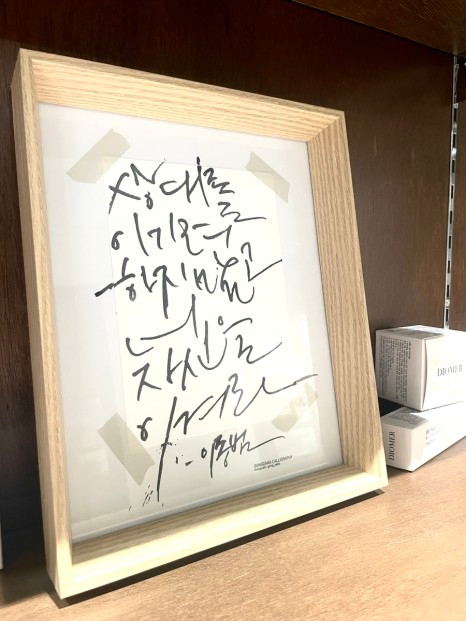 상대를
이기려
하지 말고
니
자신을
이겨라
이종범
DIOMER
DIOMER